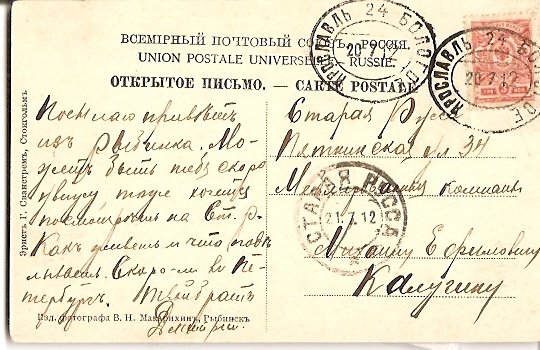 ВСЕМІРНЫЙ ПОЧТОВЫЙ СОЮЗЪ. РОССІЯ.
UNION POSTALE UNIVERSELLE. RUSSIE.
ОТКРЫТОЕ ПИСЬМО. — CARTE POSTALE
ЯРОСЛАВЛЬ 24 БОЛОГОЕ
20 7 12
ЯРОСЛАВЛЬ 24 БОЛОГОЕ
20 7 12
Посылаю привѣтъ
изъ Рыбинска. Мо-
жетъ быть тебя скоро
увижу тоже хочется
посмотрѣть на Ст. р.
Какъ живешь и что
Скоро-ли въ Пе-
тербургъ. Твой братъ
Дмитрій
Старая Русса
Пятницкая ул 34
компаніи
Михаилу Ефимовичу
Калугину
СТАРАЯ РУССА
21.7.12
Эрнстъ Г. Сванстремъ, Стокгольмъ
Изд. фотографа В. Н. Рыбинскъ